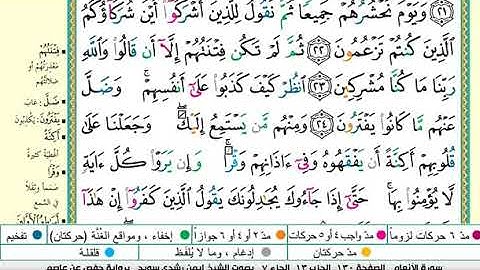 ﴿٢١﴾ وَيَوْمَ نَحْشُرُهُمْ جَمِيعًا ثُمَّ نَقُولُ لِلَّذِينَ أَشْرَكُوٓا۟ أَيْنَ شُرَكَآؤُكُمُ
ٱلَّذِينَ كُنتُمْ تَزْعُمُونَ ﴿٢٢﴾ ثُمَّ لَمْ تَكُن فِتْنَتُهُمْ إِلَّآ أَن قَالُوا۟ وَٱللَّهِ
رَبِّنَا مَا كُنَّا مُشْرِكِينَ ﴿٢٣﴾ ٱنظُرْ كَيْفَ كَذَبُوا۟ عَلَىٰٓ أَنفُسِهِمْ ۚ وَضَلَّ
عَنْهُم مَّا كَانُوا۟ يَفْتَرُونَ ﴿٢٤﴾ وَمِنْهُم مَّن يَسْتَمِعُ إِلَيْكَ ۖ وَجَعَلْنَا عَلَىٰ
قُلُوبِهِمْ أَكِنَّةً أَن يَفْقَهُوهُ وَفِىٓ ءَاذَانِهِمْ وَقْرًا ۚ وَإِن يَرَوْا۟ كُلَّ ءَايَةٍ
لَّا يُؤْمِنُوا۟ بِهَا ۚ حَتَّىٰٓ إِذَا جَآءُوكَ يُجَٰدِلُونَكَ يَقُولُ ٱلَّذِينَ كَفَرُوٓا۟ إِنْ هَٰذَآ
فِتْنَتُهُمْ
مَعْذِرَتُهُمْ أو
ضَلَّ : غاب
يَفْتَرُونَ : يَكْذِبُونَ
أَكِنَّةً
أغطية كثيرة
وَقْرًا
صمما وثقلا
مدّ ٦ حركات لزوماً
مدّ واجب ٤ أو ٥ حركات
مدّ ٢ أو ٤ أو ٦ جوازاً
إخفاء ، ومواقع الغُنَّة (حركتان)
تفخيم
مدّ حركتان
إدغام ، وما لا يُلفَظ
قلقلة
سورة الأنعام الصفحة ١٣٠ الحزب ١٣ الجزء ٧ بصوت الشيخ أيمن رشدي سويد برواية حفص عن عاصم